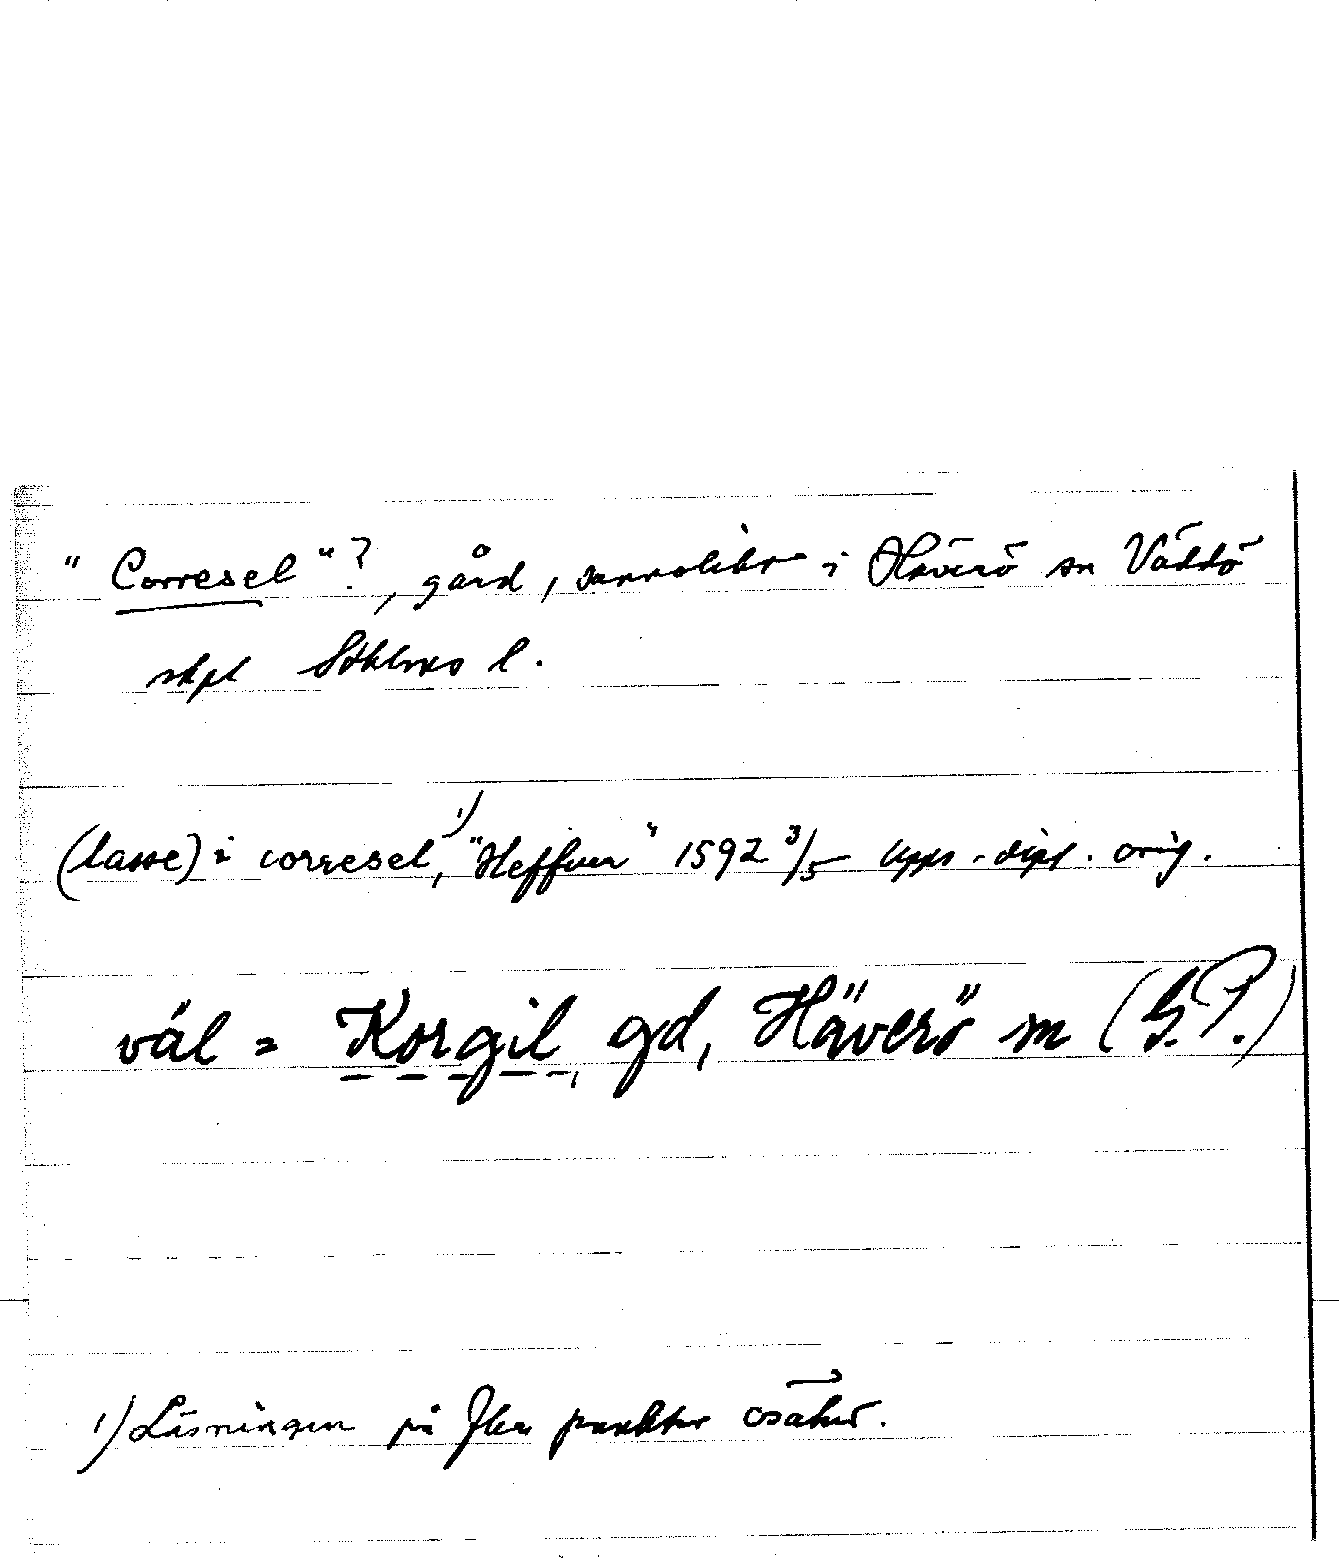 "Corresel"?, gård, sannolikt i Häverö sn Väddö
skpl Sthlms l.
(lasse) i corresel,¹⁾ "Heffuer" 1592 3/5 Upps. dipl. orig.
väl = Korgil, gd, Häverö sn (G.P.)
1) Läsningen på flera punkter osäker.